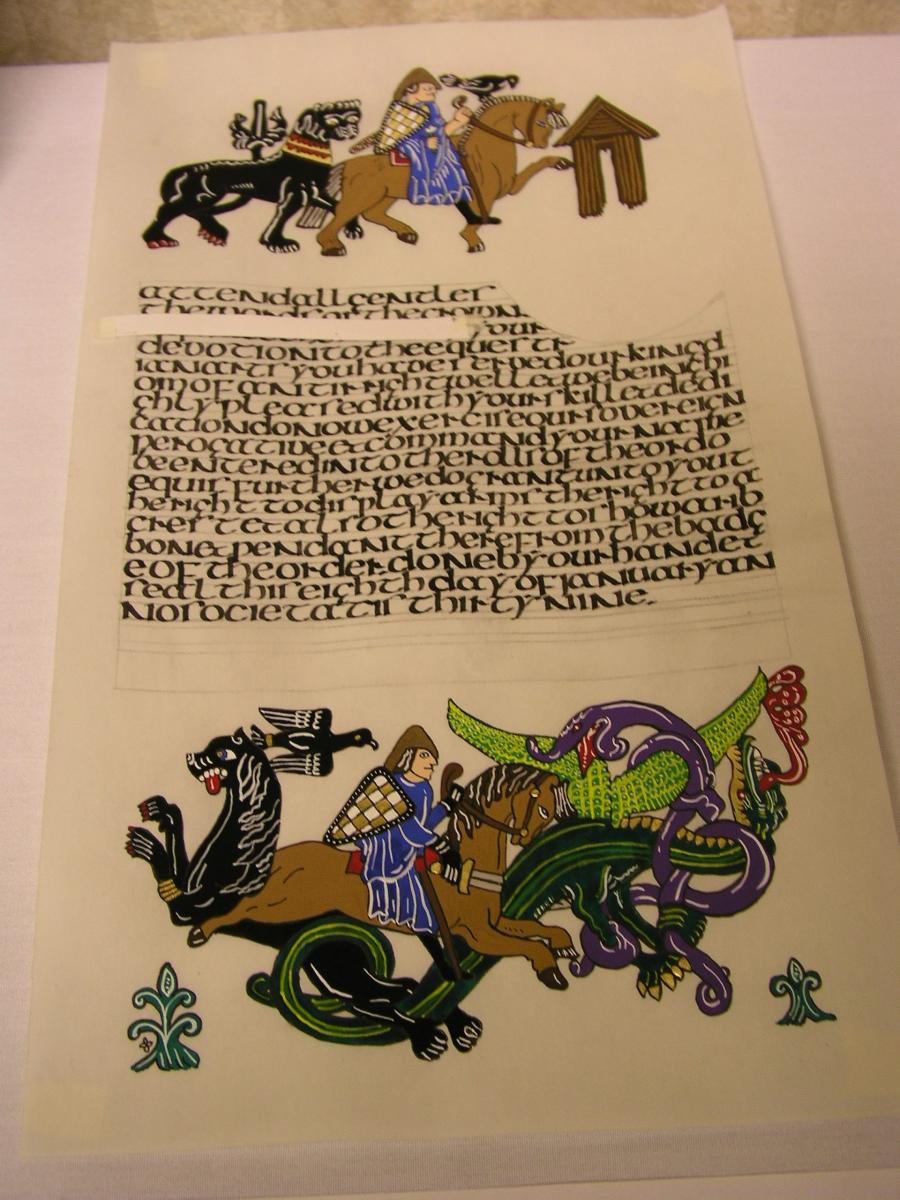 attendallgentler
thewordsofthecrown
your
devotiontotheequestr
ianartsyouhaveservedourkingd
omofantirrightwelletwebeinghi
ghlypleasedwithyourskilletdedi
cationdonowexerciseoursovereign
perogativeetcommandyournamebe
beenteredintotherollsoftheordo
equisfurtherwedograntuntoyout
herighttodisplayarmstherighttoa
cresteetalsotherighttoshowarib
bonetpendanttherefromthebadg
eoftheorder.donebyourhandet
sealthiseighthdayofjanuaryan
nosocietatisthirtynine.